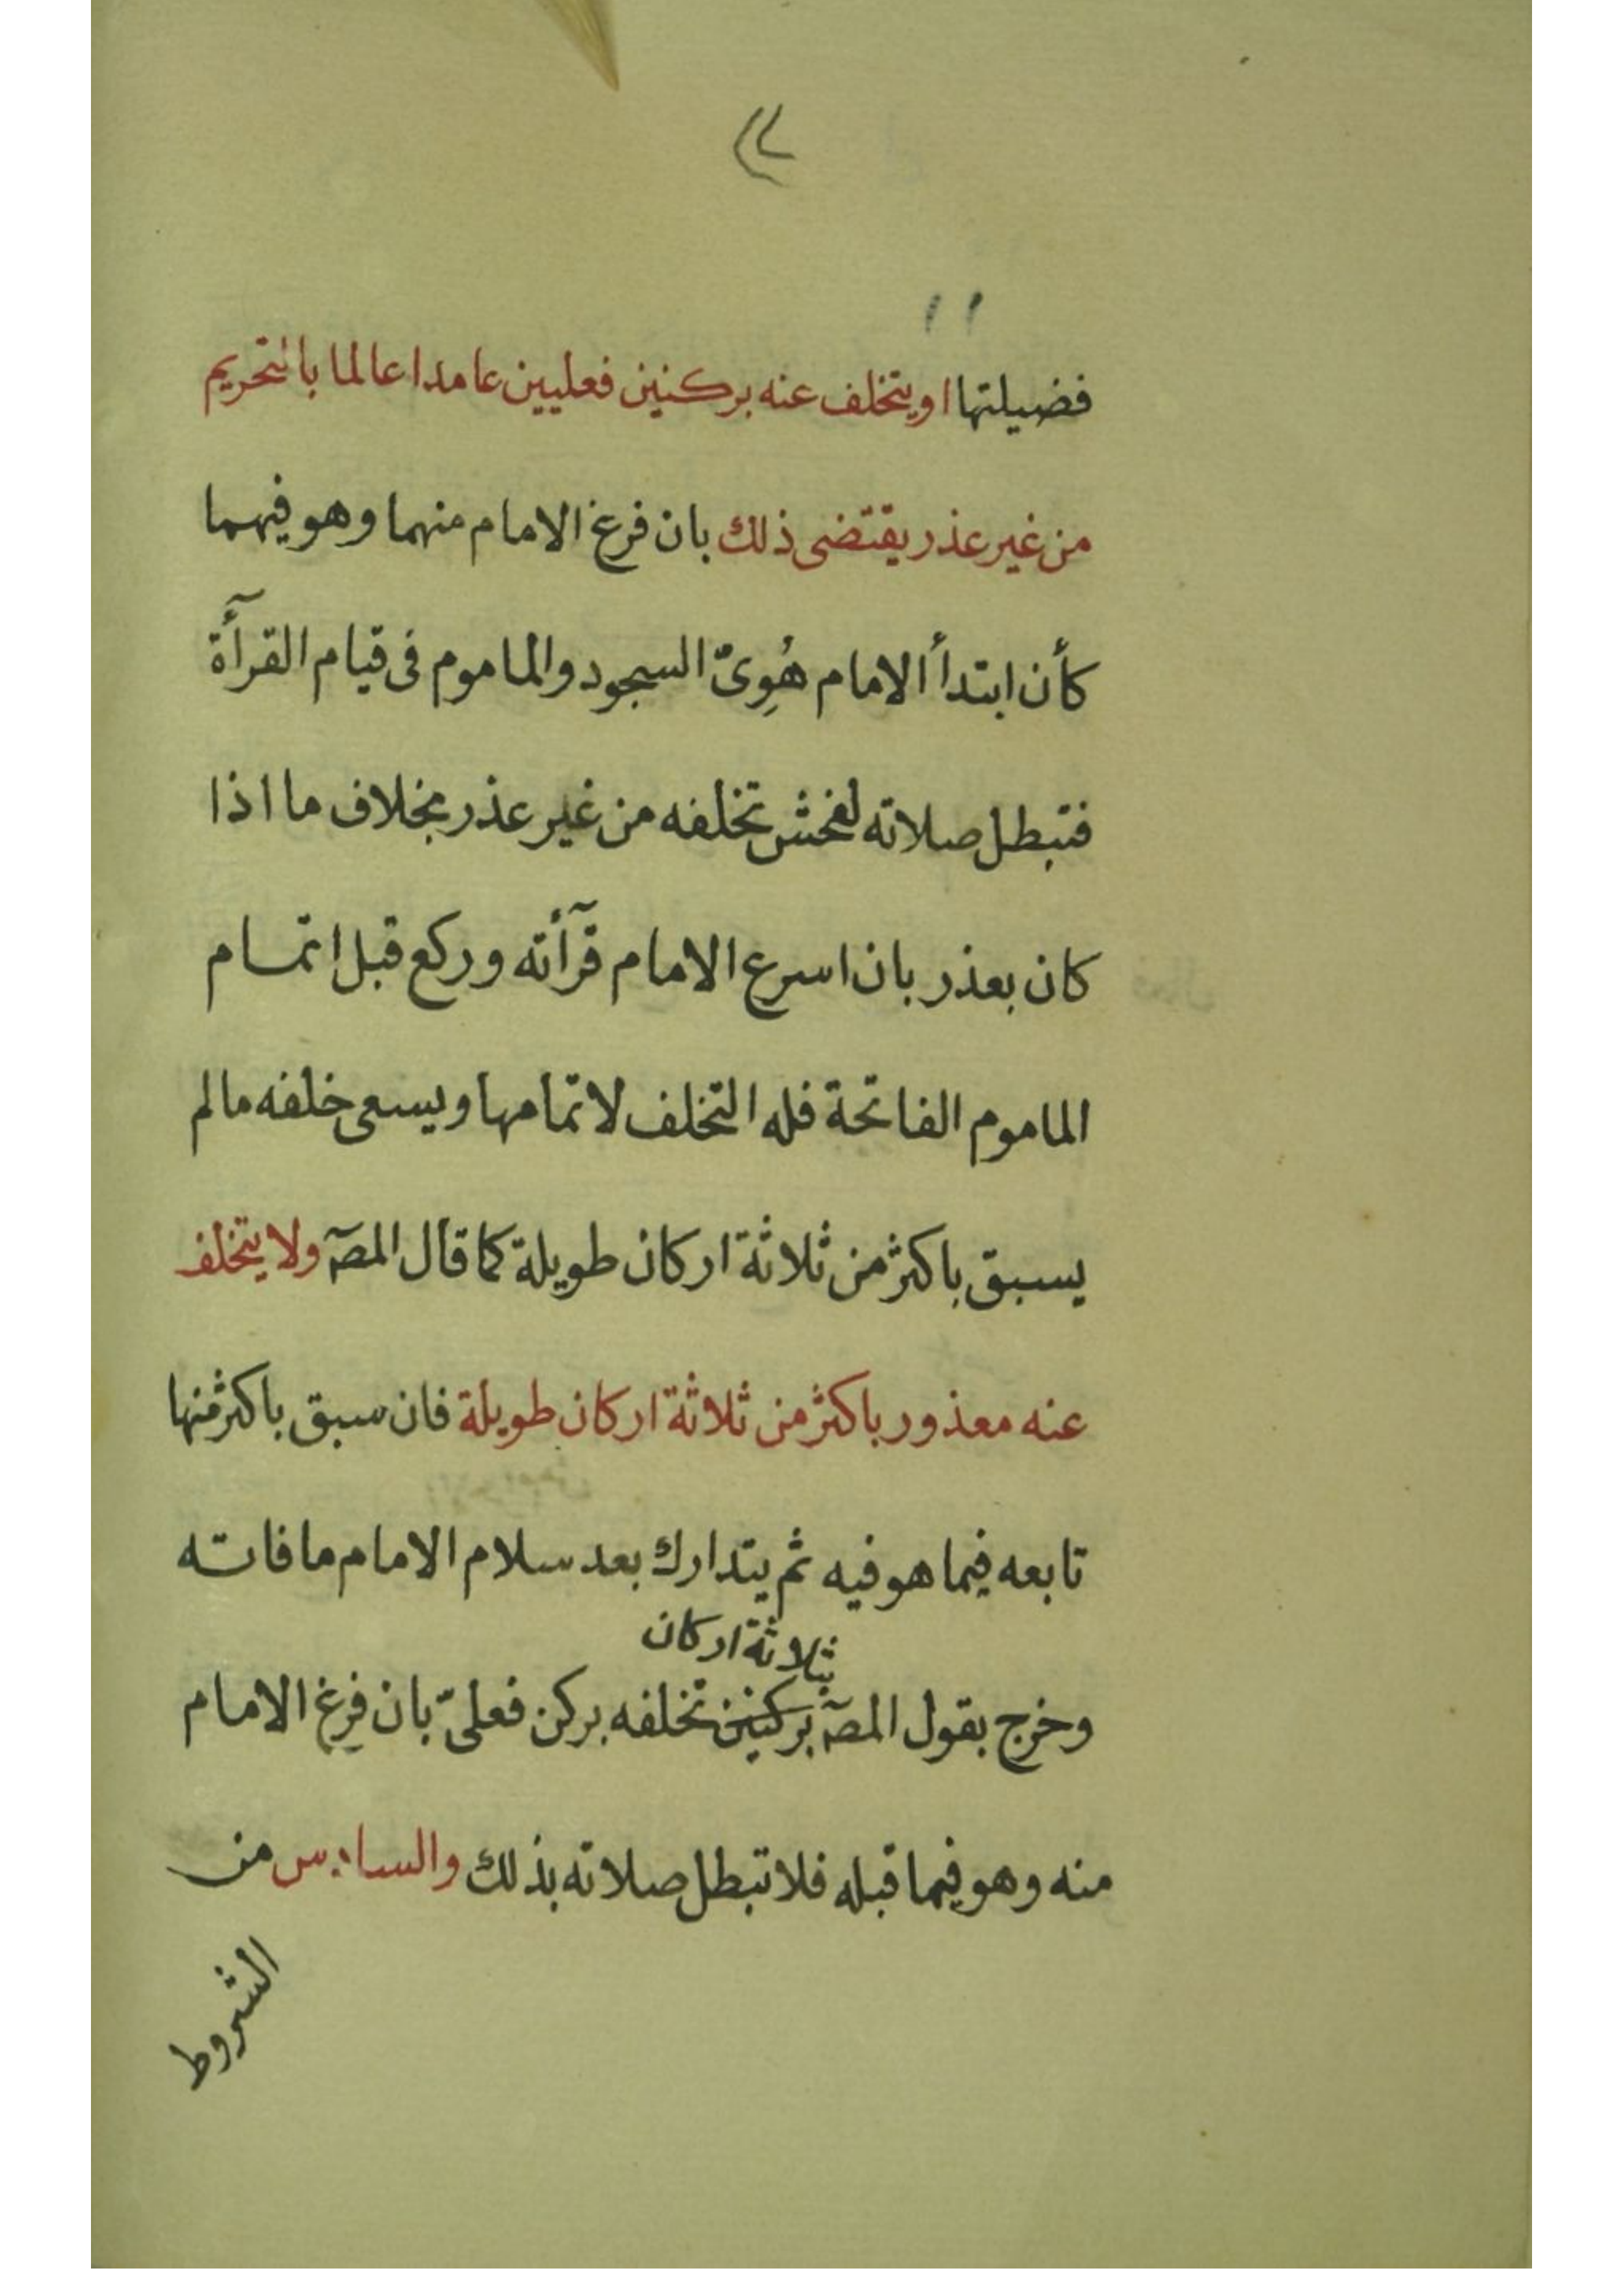 فضيلتها او يتخلف عنه بركنين فعليين عامدا عالما بالتحريم
من غير عذر يقتضى ذلك بان فرغ الامام منهما وهو فيهما
كأن ابتدأ الامام هُوِىّ السجود والماموم فى قيام القرآءة
فتبطل صلاته لفحش تخلفه من غير عذر بخلاف ما اذا
كان بعذر بان اسرع الامام قرآءته وركع قبل اتمام
الماموم الفاتحة فله التخلف لاتمامها ويسعى خلفه مالم
يسبق باكثر من ثلاثة اركان طويلة كما قال المصٓ ولا يتخلف
عنه معذور باكثر من ثلاثة اركان طويلة فان سبق باكثر منها
تابعه فيما هو فيه ثم يتدارك بعد سلام الامام ما فاته
بثلاثة اركان
وخرج بقول المصٓ بركنين تخلفه بركن فعلىّ بان فرغ الامام
منه وهو فيما قبله فلا تبطل صلاته بذلك والسادس من
الشروط